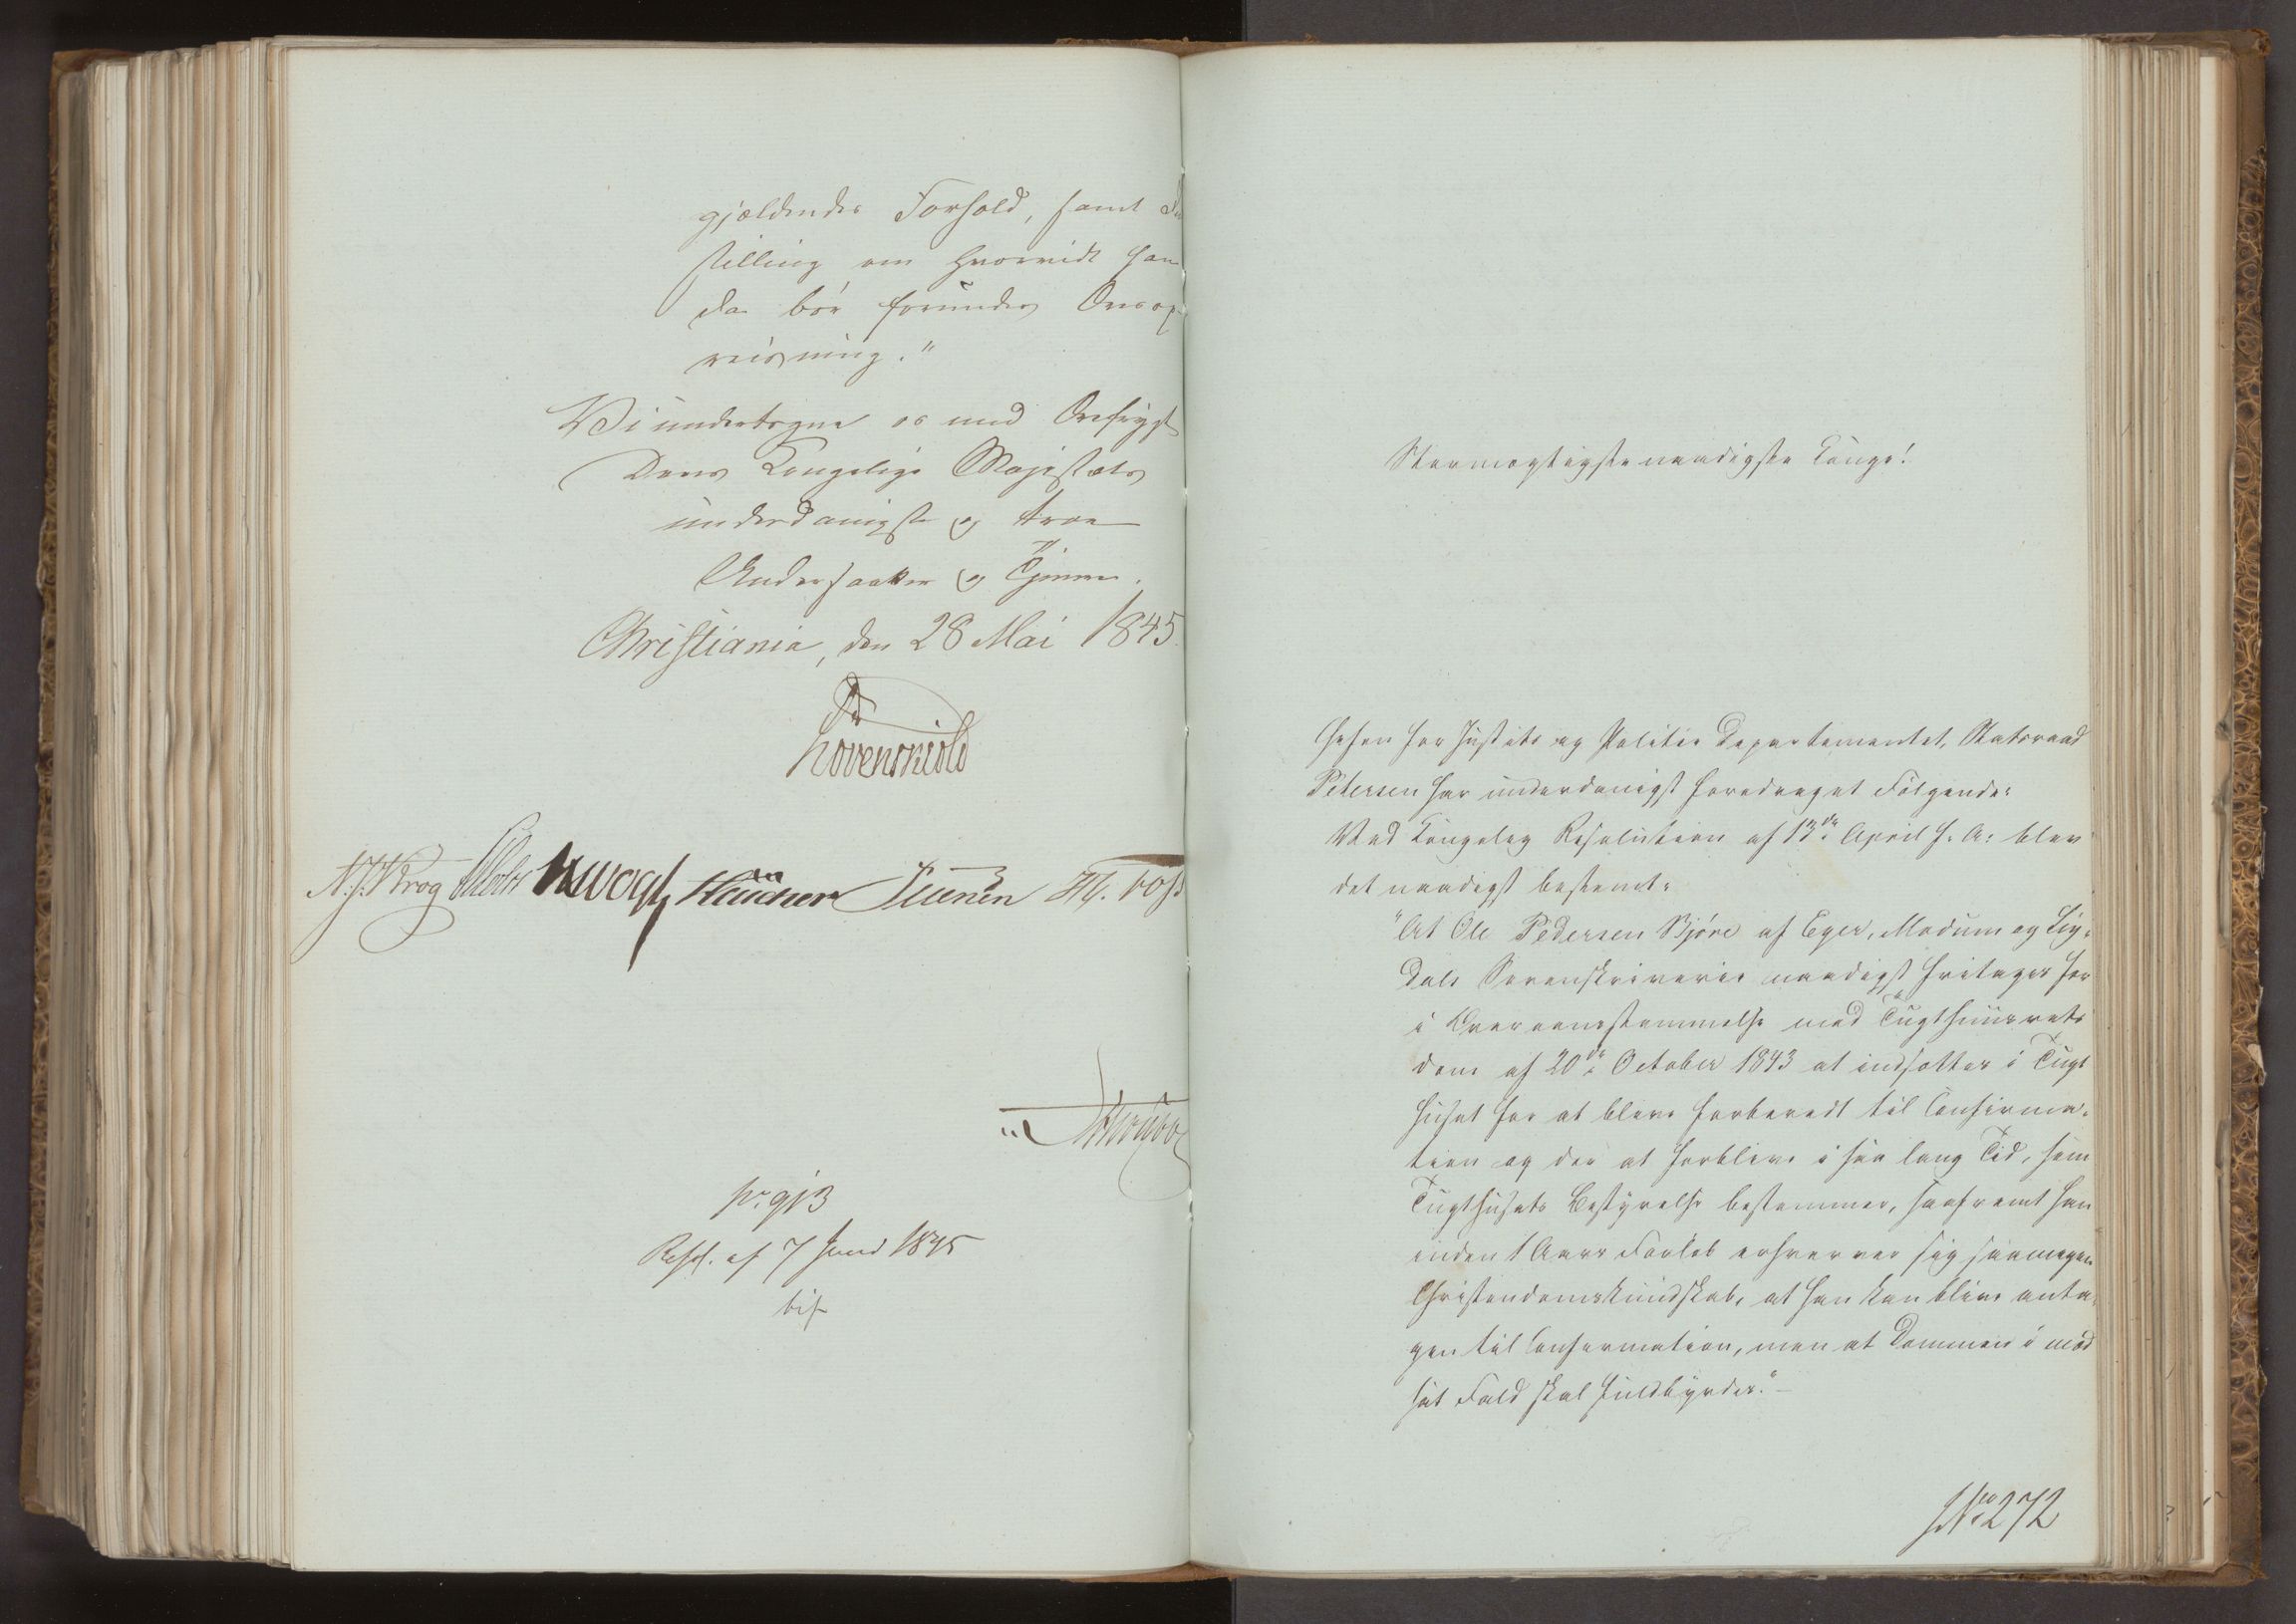 gjældendes Forhold, samt
stilling om hvorvidt han
da bör forundes Opreis
reisning."
Vi undertegne os med Ærefrygt
Deres Kongelige Majestæts
underdanigste og troe
Undersaatter og Tjenere.
Christiania, den 28 Mai 1845.
Lövenskiold
N. J. Krog Sibbern JHVogt
pr. 9/3
Resol. af 7 Juni 1845
Stormægtigste naadigste Konge!
Chefen for Justits og Politie Departementet, Statsraad
Petersen har underdanigst foredraget Fölgende:
Ved Kongelig Resolution af 13de April f. A. blev
det naadigst bestemt:
"At Ole Pedersen Björe af Eger, Modum og Sig-
dals Sorenskriverie naadigst fritages for
i Overeensstemmelse med Tugthuusrets
dom af 20de October 1843 at indsættes i Tugt
huset for at blive forberedt til Confirma-
tion og der at forblive i saa lang Tid, som
Tugthusets Bestyrelse bestemmer, saafremt han
inden 1 Aars Forlöb erhverver sig saamegen
Christendomskundskab, at han kan blive anta-
gen til Confirmation, men at Dommen i mod
sat Fald skal fuldbyrdes."-
JNo 272